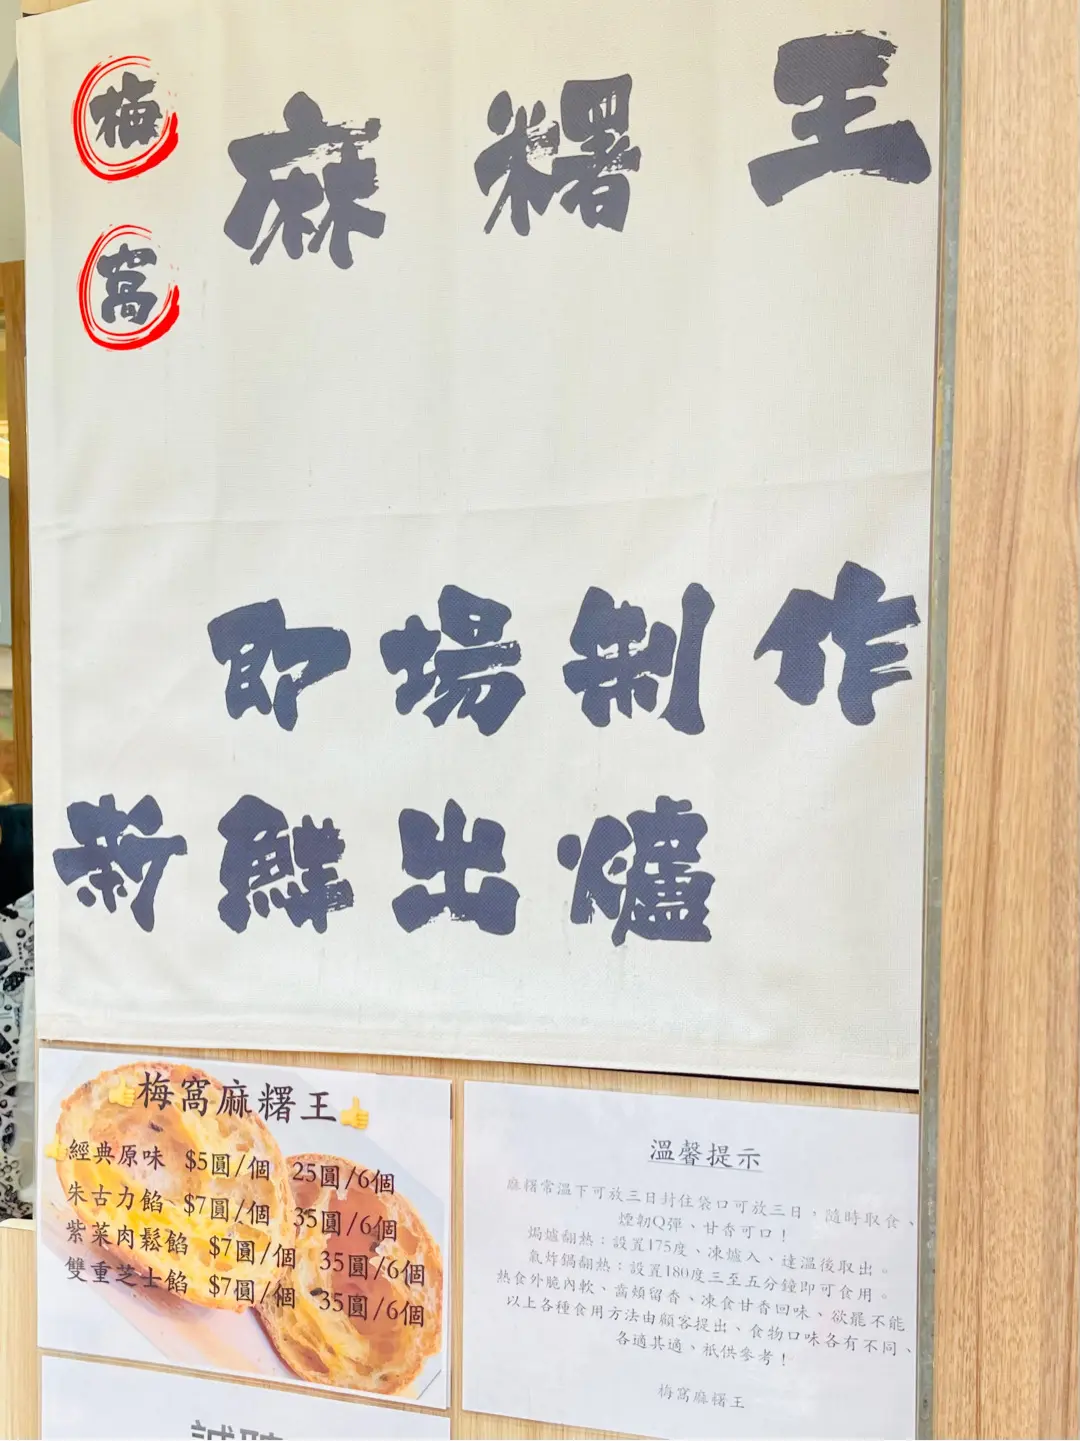 梅窩
麻糬王
即場制作
新鮮出爐
👍梅窩麻糬王👍
👍經典原味 $5圓/個 25圓/6個
朱古力餡 $7圓/個 35圓/6個
紫菜肉鬆餡 $7圓/個 35圓/6個
雙重芝士餡 $7圓/個 35圓/6個
溫馨提示
麻糬常溫下可放三日封住袋口可放三日，隨時取食、
煙韌Q彈、甘香可口！
焗爐翻熱：設置175度、凍爐入、達溫後取出。
氣炸鍋翻熱：設置180度三至五分鐘即可食用。
熱食外脆內軟、齒頰留香、凍食甘香回味、欲罷不能
以上各種食用方法由顧客提出、食物口味各有不同、
各適其適、祇供參考！
梅窩麻糬王
誠聘